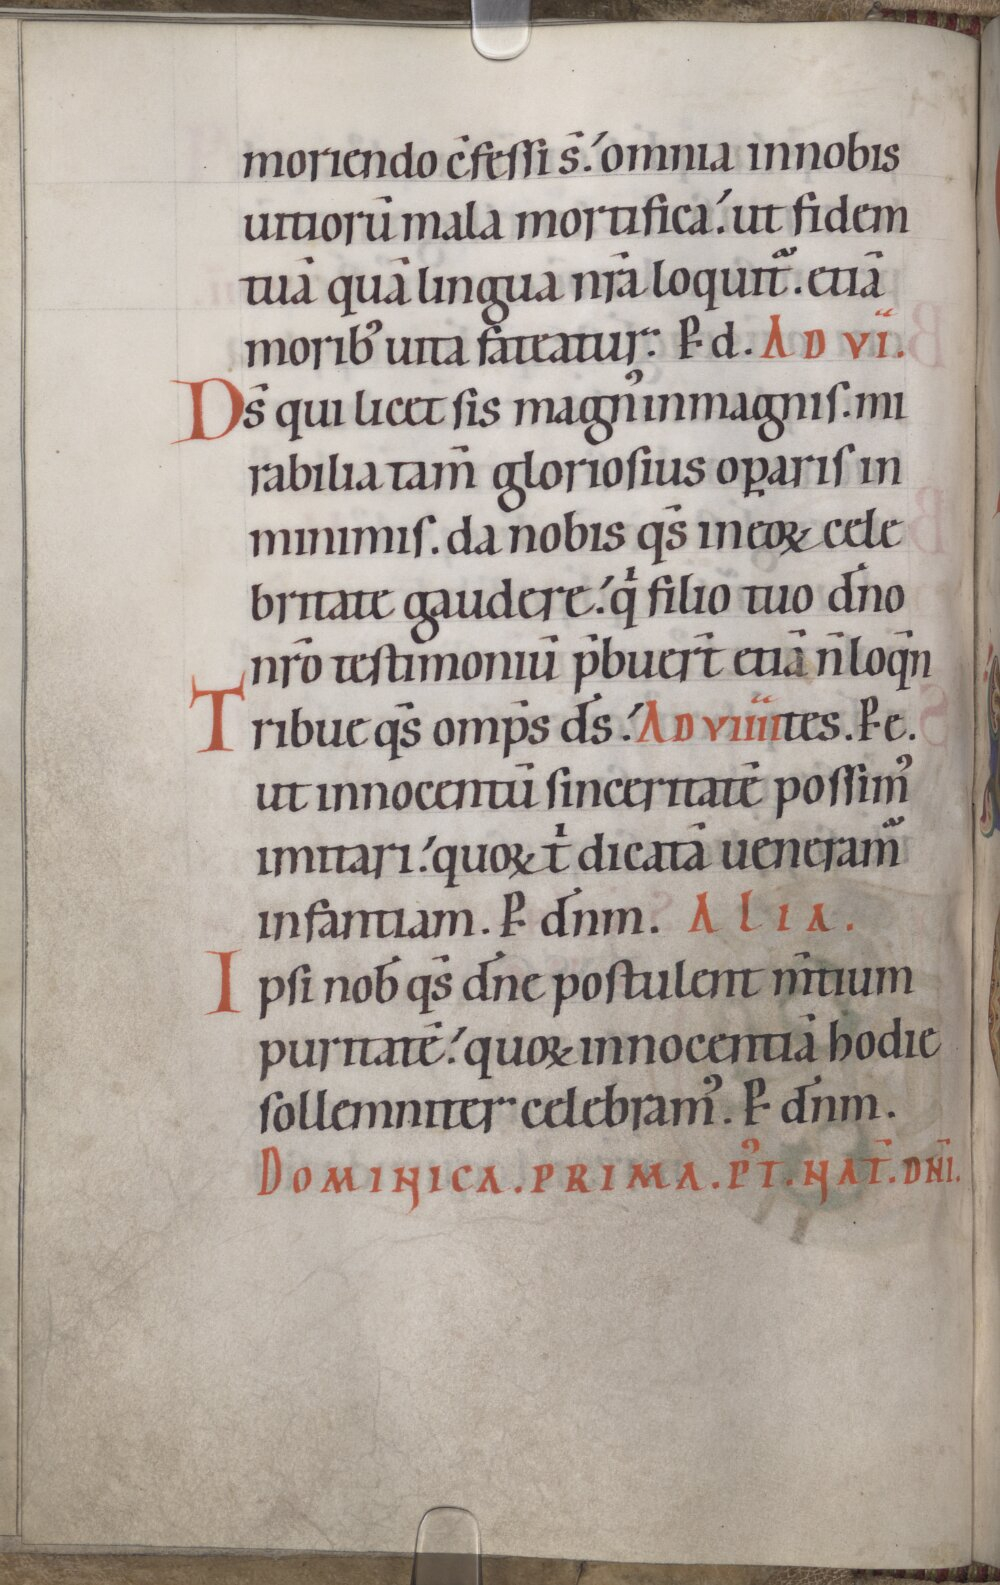 moriendo c̄feſſi s̄. omnia innobis
uitiorū mala mortifica. ut fidem
tuā quā lingua nr̄a loquit᷑. etiā
morib᾽ uita fateatur. P̵ d. AD VI.
Ds̄ qui licet ſis magn᾽ inmagniſ. mi
rabilia tam̄ glorioſius oꝑariſ in
minimiſ. da nobis qs̄ in eoꝝ cele
britate gaudere. qͥ filio tuo dn̄o
nr̄o teſtimoniū p̄buer̄t etiā n̄ loq̄n
Tribue qs̄ omp̄s ds̄. AD VIIII tes. P̵ e.
ut innocentū ſinceritatē poſſim᾽
imitari. quoꝝ tͥ dicatā ueneram᷑
infantiam. P̵ dn̄m. ALIA.
Ipſi nob̄ qs̄ dn̄e poſtulent m̄tium
puritatē. quoꝝ innocentiā hodie
ſollemniter celebram᾽. P̵ dn̄m.
DOMINICA. PRIMA. P᾽T. NAT̄. DN̄I.